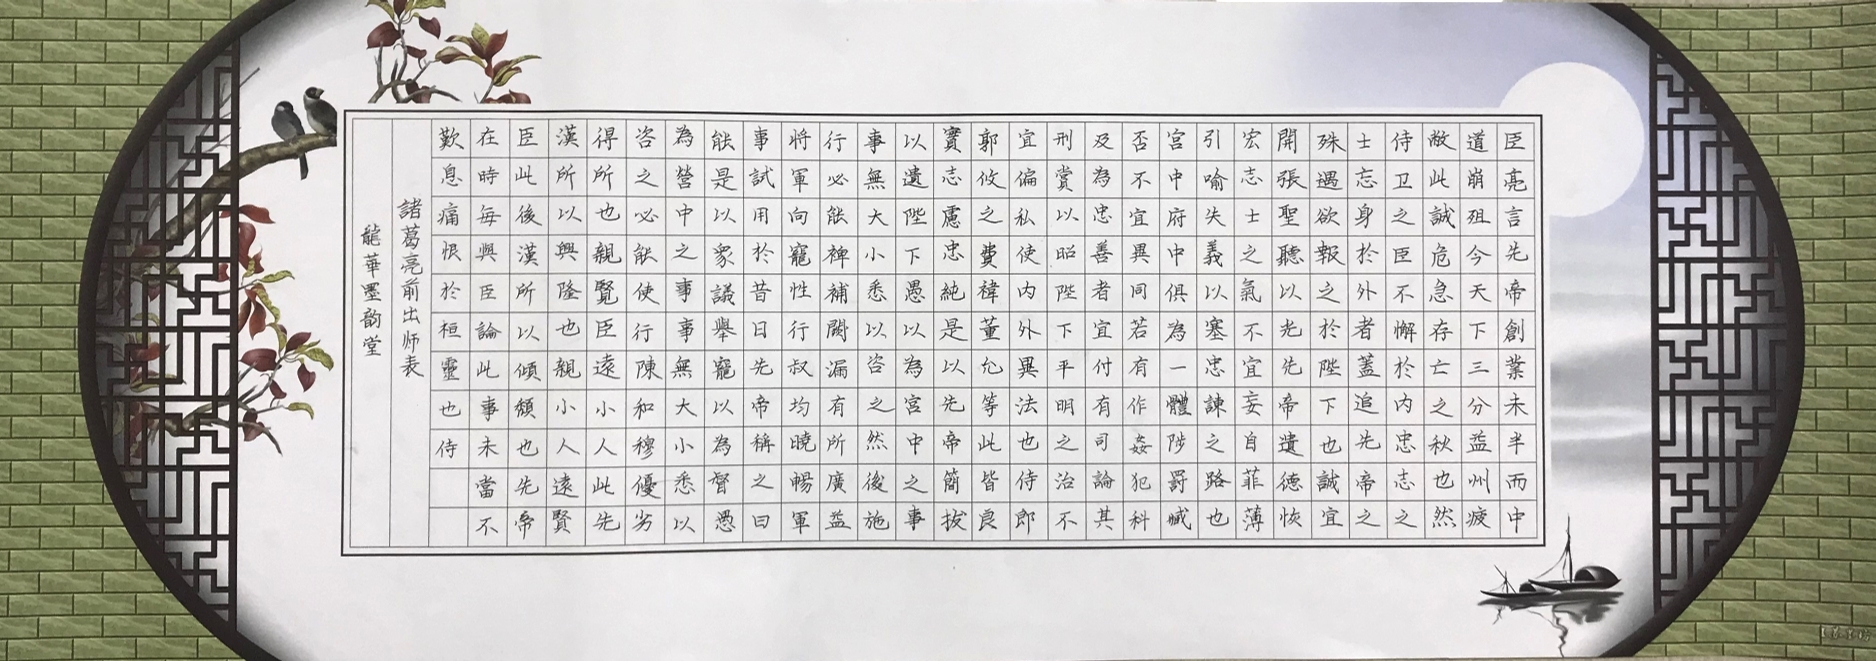 臣亮言先帝創業未半而中
道崩殂今天下三分益州疲
敝此誠危急存亡之秋也然
侍卫之臣不懈於內忠志之
士忘身於外者蓋追先帝之
殊遇欲報之於陛下也誠宜
開張聖聽以光先帝遺德恢
宏志士之氣不宜妄自菲薄
引喻失義以塞忠諫之路也
宮中府中俱為一體陟罰臧
否不宜異同若有作姦犯科
及為忠善者宜付有司論其
刑賞以昭陛下平明之治不
宜偏私使內外異法也侍郎
郭攸之費禕董允等此皆良
實志慮忠純是以先帝簡拔
以遺陛下愚以為宮中之事
事無大小悉以咨之然後施
行必能裨補闕漏有所廣益
將軍向寵性行叔均曉暢軍
事試用於昔日先帝稱之曰
能是以眾議舉寵以為督愚
為營中之事事無大小悉以
咨之必能使行陳和穆優劣
得所也親賢臣遠小人此先
漢所以興隆也親小人遠賢
臣此後漢所以傾頹也先帝
在時每與臣論此事未當不
歎息痛恨於桓靈也侍
諸葛亮前出师表
龍華墨韵堂